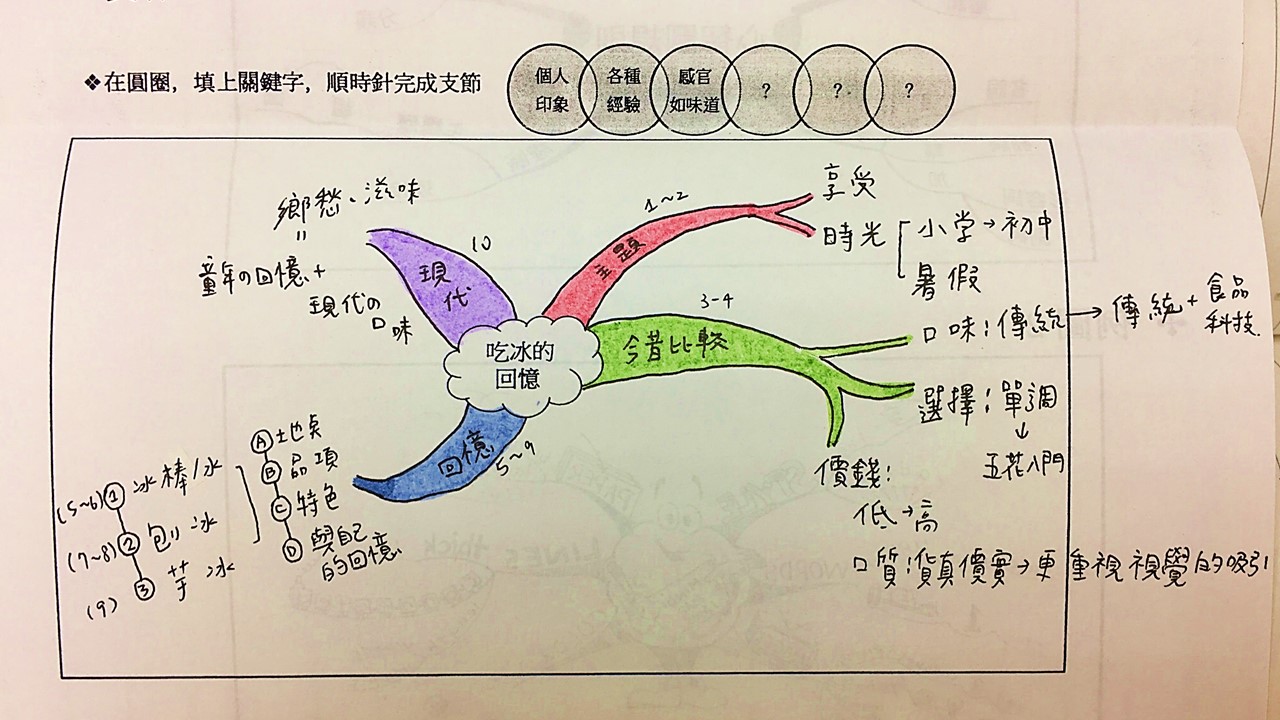 ❖在圓圈，填上關鍵字，順時針完成支節
個人
印象
各種
經驗
感官
如味道
?
?
?
吃冰的
回憶
主題
1~2
享受
時光
小学→初中
暑假
今昔比較
3-4
口味:傳統→傳統+食品
科技
選擇:單調
↓
五花八門
價錢:
低→高
口質:貨真價實→更重視視覺的吸引
回憶
5~9
Ⓐ土地点
Ⓑ品項
Ⓒ特色
Ⓓ與自己
的回憶
(5~6)①冰棒/冰
(7~8)②包冰
(9)③芋冰
現代
10
鄉愁、滋味
=
童年の回憶+
現代の
口味